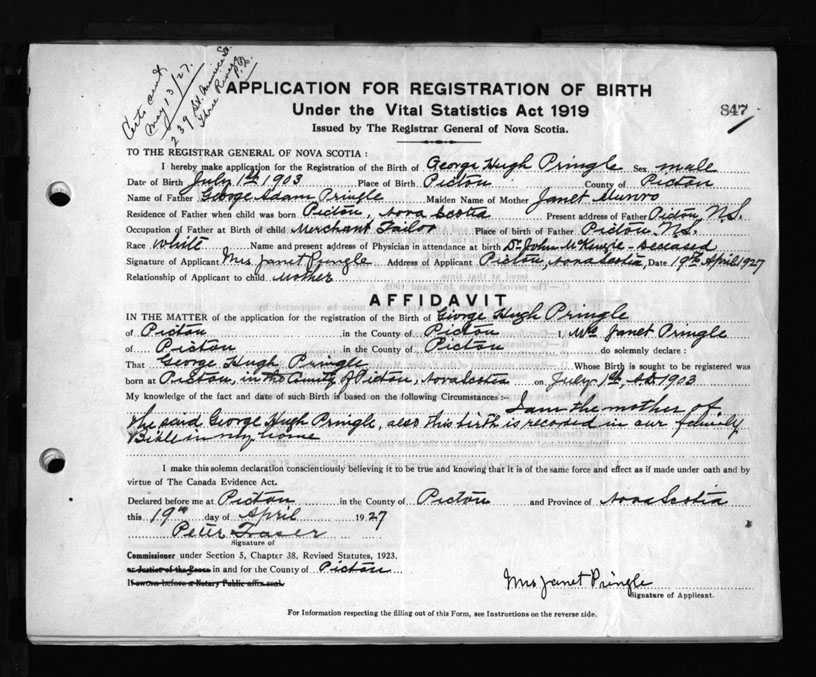 Certs and
May 13/27.
239 St. Maurice St.
Three Rivers
P.Q.
APPLICATION FOR REGISTRATION OF BIRTH
Under the Vital Statistics Act 1919
847
Issued by The Registrar General of Nova Scotia.
TO THE REGISTRAR GENERAL OF NOVA SCOTIA :
I hereby make application for the Registration of the Birth of George Hugh Pringle Sex male
Date of Birth July 1st 1903 Place of Birth Pictou County of Pictou
Name of Father George Adam Pringle Maiden Name of Mother Janet Munro
Residence of Father when child was born Pictou, Nova Scotia Present address of Father Pictou, N.S.
Occupation of Father at Birth of child Merchant Tailor Place of birth of Father Pictou N.S.
Race White Name and present address of Physician in attendance at birth Dr John McKenzie - deceased
Signature of Applicant Mrs Janet Pringle Address of Applicant Pictou, Nova Scotia, Date 19th April 1927
Relationship of Applicant to child Mother
AFFIDAVIT
IN THE MATTER of the application for the registration of the Birth of George Hugh Pringle
of Pictou in the County of Pictou I, Mrs Janet Pringle
of Pictou in the County of Pictou do solemnly declare :
That George Hugh Pringle Whose Birth is sought to be registered was
born at Pictou, in the County of Pictou, Nova Scotia on July 1st, AD 1903
My knowledge of the fact and date of such Birth is based on the following Circumstances :- I am the mother of
the said George Hugh Pringle, also this birth is recorded in our family
Bible in my home
I make this solemn declaration conscientiously believing it to be true and knowing that it is of the same force and effect as if made under oath and by
virtue of The Canada Evidence Act.
Declared before me at Pictou in the County of Pictou and Province of Nova Scotia
this 19th day of April 1927
Peter Fraser
Signature of
Commissioner under Section 5, Chapter 38, Revised Statutes, 1923.
or Justice of the Peace in and for the County of Pictou
If sworn before a Notary Public affix seal.
Mrs Janet Pringle
Signature of Applicant.
For Information respecting the filling out of this Form, see Instructions on the reverse side.